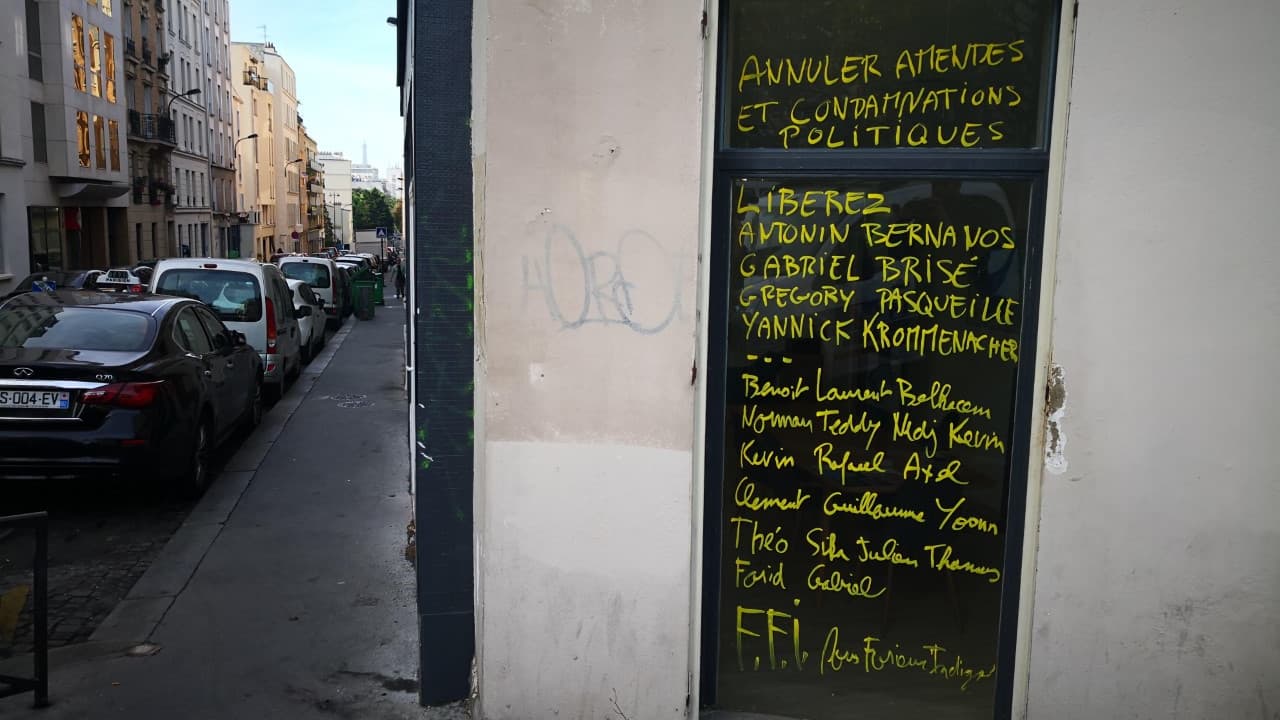 ANNULER AMENDES
ET CONDAMNATIONS
POLITIQUES
LIBEREZ
ANTONIN BERNANOS
GABRIEL BRISÉ
GREGORY PASQUEILLE
YANNICK KROMMENACHER
---
Benoit Laurent Belhacem
Norman Teddy Nedj Kevin
Kevin Rafael Axel
Clement Guillaume Yoann
Théo Julien Thomas
Farid Gabriel
F.F.I.
Q70
S-004-EV
PARISIEN